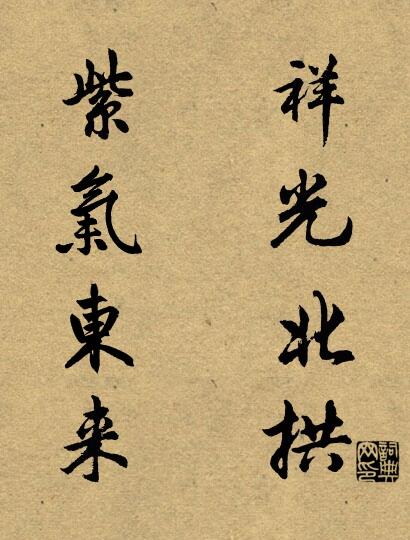 祥光北拱
紫氣東来
詞典网印